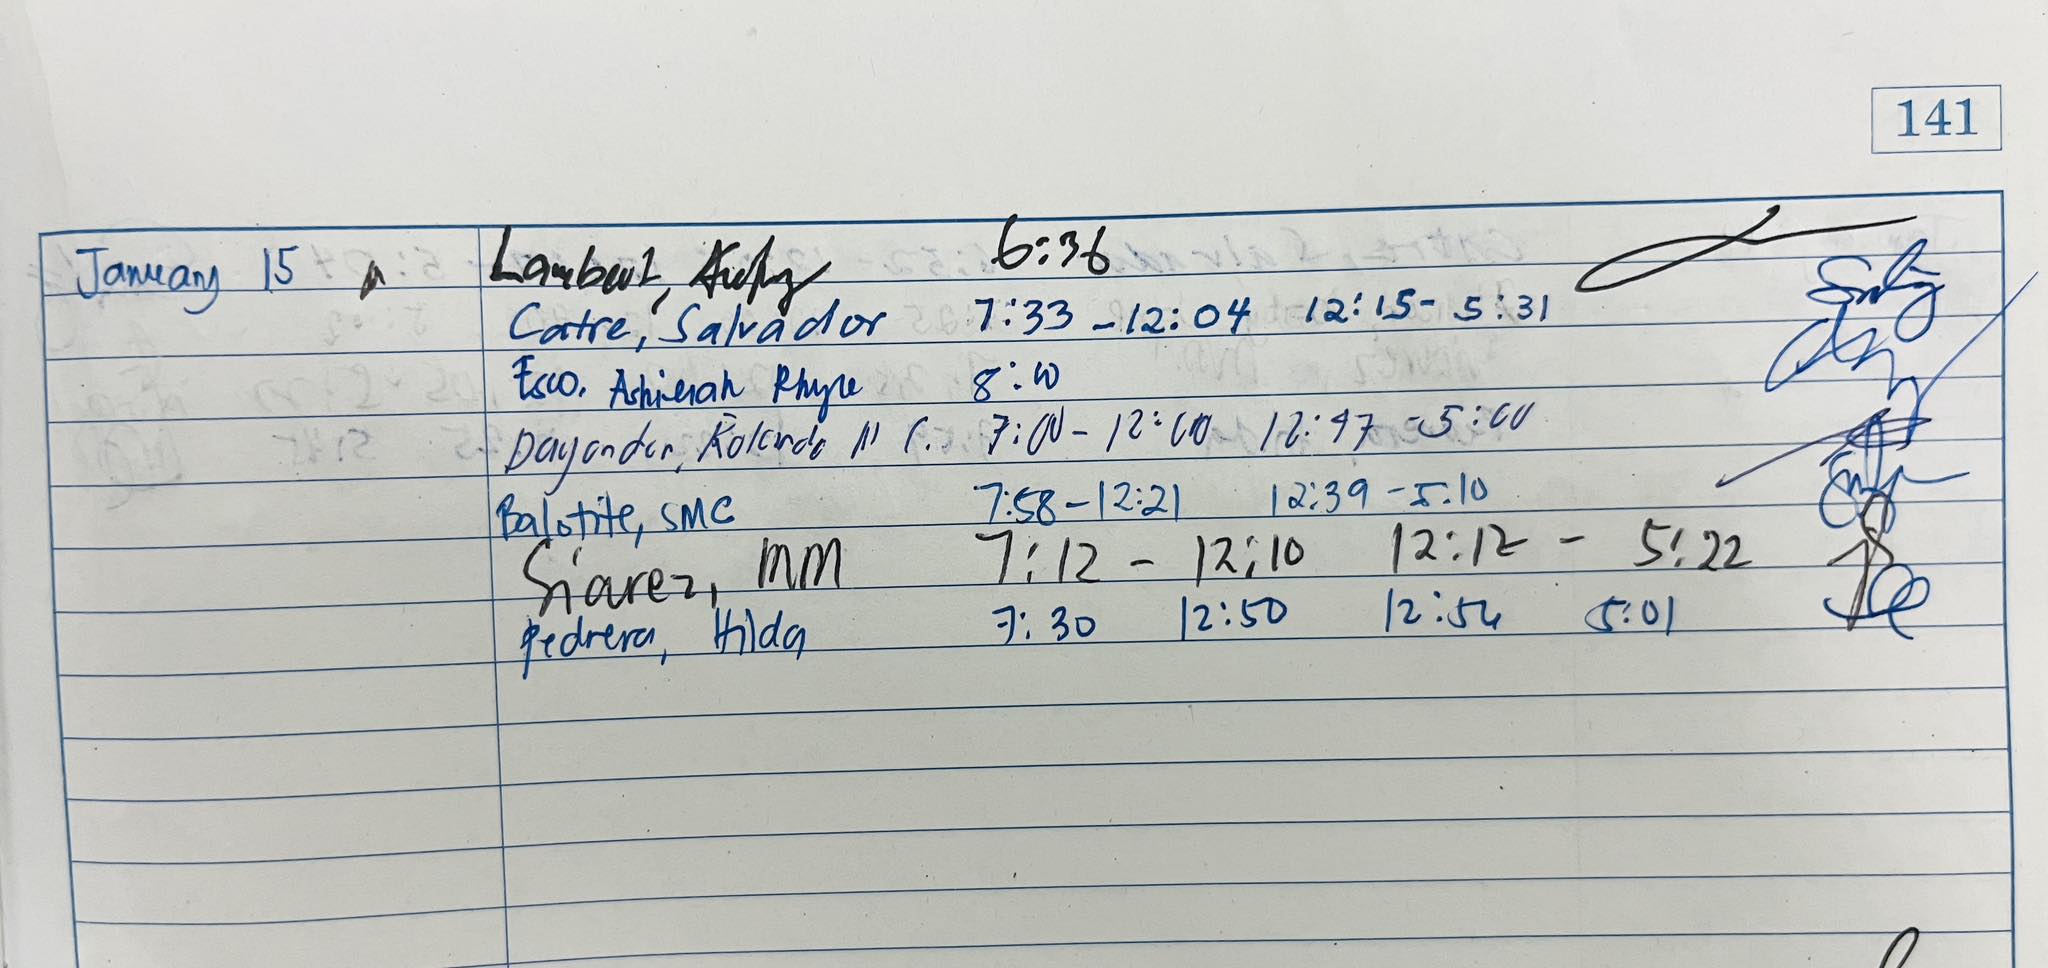 141
January 15
Lambert, 6:36
Catre, Salvador 7:33 - 12:04 12:15 - 5:31
Esco, Ashierah Rhyze 8:10
Dayandan, Rolando III C. 7:00 - 12:00 12:47 - 5:00
Balotite, SMC 7:58 - 12:21 12:39 - 5:10
Siarez, MM 7:12 - 12:10 12:12 - 5:22
Pedrera, Hilda 7:30 12:50 12:54 5:01